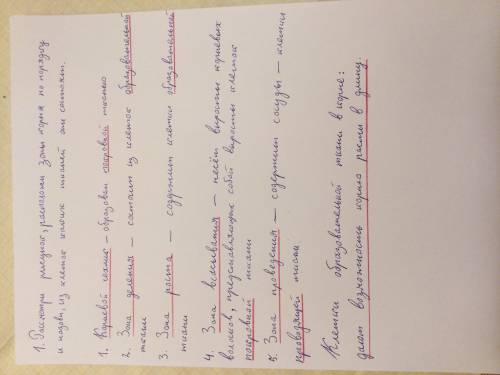 1. Рассмотри рисунок, расположи зоны корня по порядку
и назови, из клеток каких тканей они состоят.
1. Корневой чехлик – образован покровной тканью
2. Зона деления – состоит из клеток образовательной
ткани
3. Зона роста – содержит клетки образовательной
ткани
4. Зона всасывания – несёт выросты корневых
волосков, представляющие собой выросты клеток
покровной ткани
5. Зона проведения – содержит сосуды – клетки
проводящей ткани
Клетки образовательной ткани в корне:
дают возможность корню расти в длину.